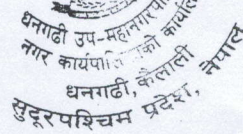 धनगढी उप-महानगरपा
नगर कार्यपालिकाको कार्याल
धनगढी, कैलाली
सुदूरपश्चिम प्रदेश, नेपाल